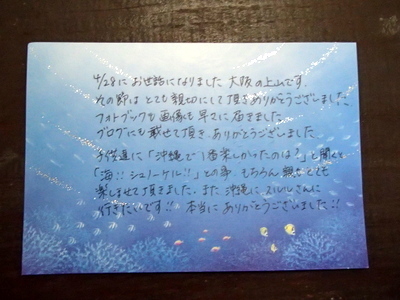 4/28に お世話になりました 大阪の上山です。
その節は とても親切にして頂きありがとうございました。
フォトブックも画像も早々に届きました。
ブログにも載せて頂き、ありがとうございました。
子供達に「沖縄で1番楽しかったのは?」と聞くと
「海!! シュノーケル!!」との事、もちろん 親もとても
楽しませて頂きました。また 沖縄に さんに
行きたいです!! 本当に ありがとうございました!!